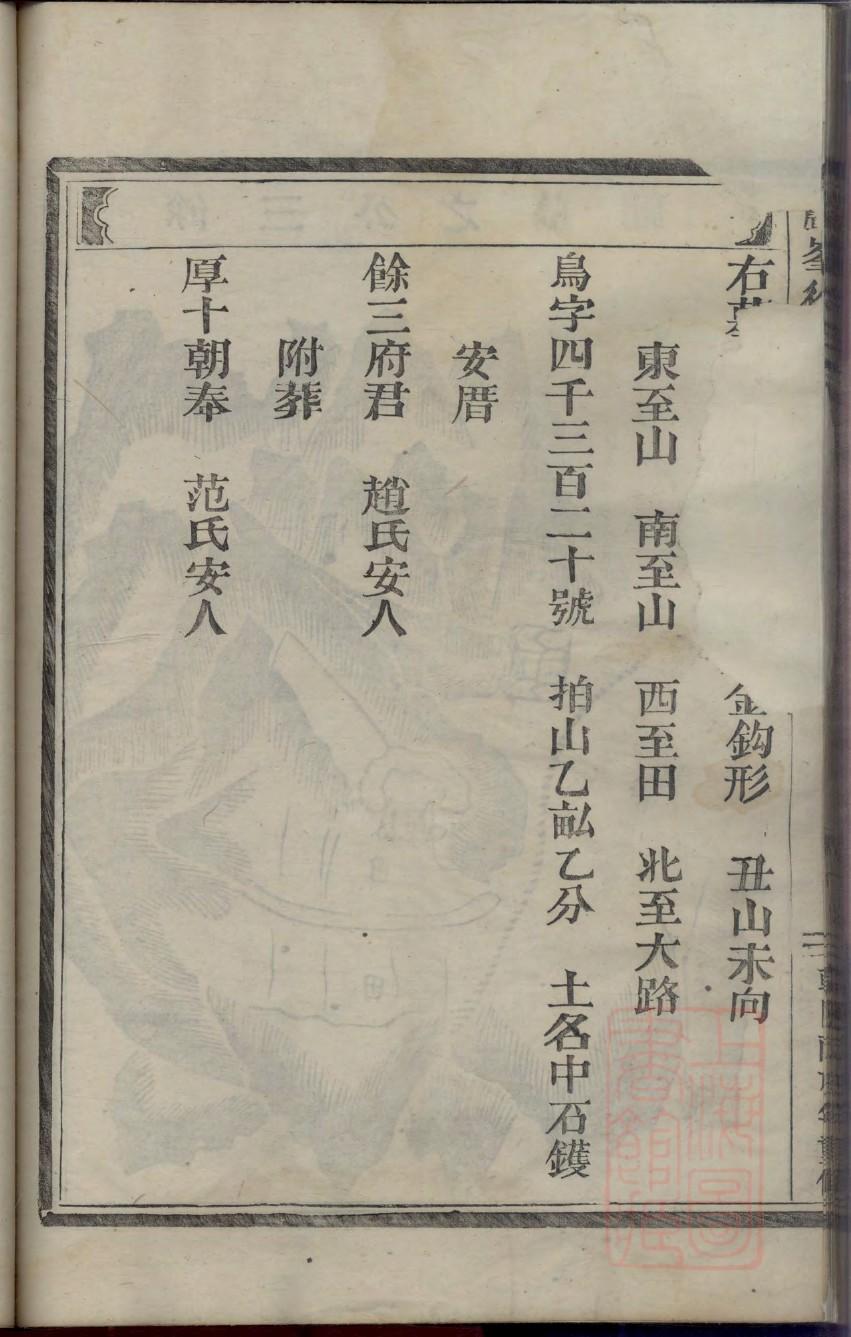 右　金鈎形　丑山未向
東至山　南至山　西至田　北至大路
鳥字四千三百二十號　拍山乙畝乙分　土名中石鑊
安厝
餘三府君　趙氏安人
附葬
厚十朝奉　范氏安人
上海圖書館藏